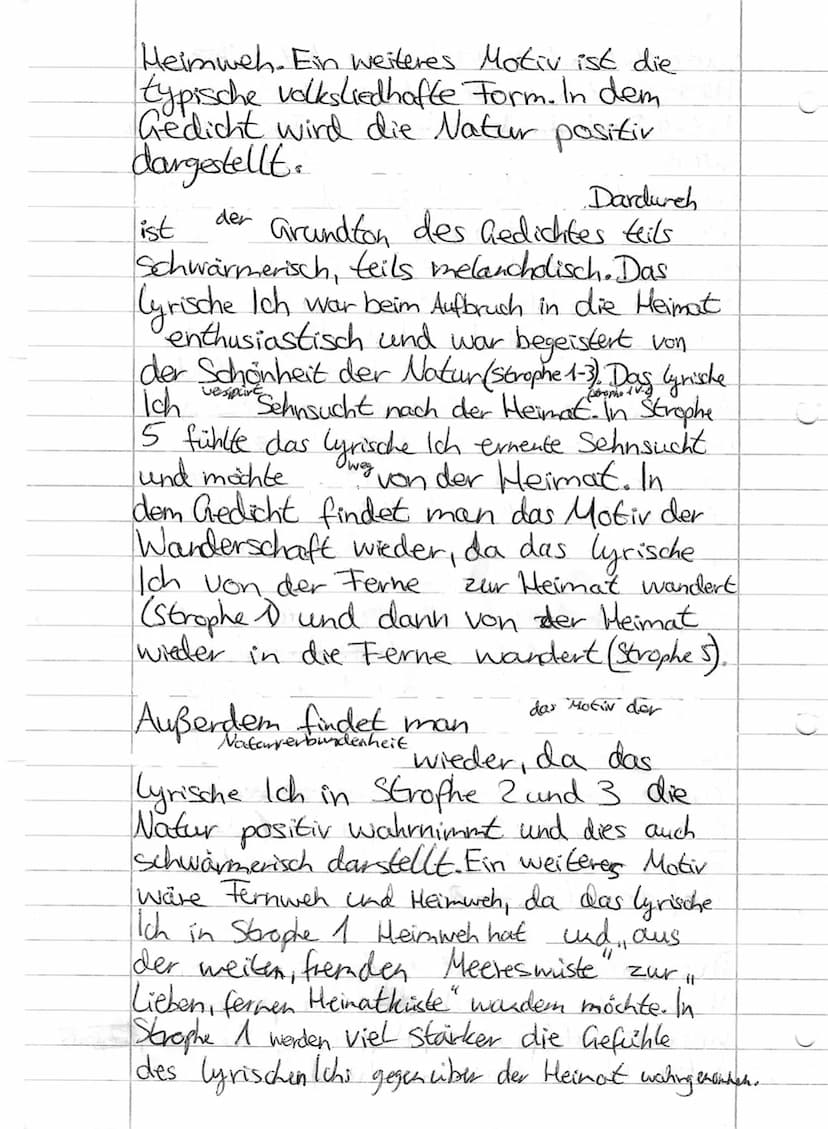 Heimweh. Ein weiteres Motiv ist die
typische volksliedhafte Form. In dem
Gedicht wird die Natur positiv
dargestellt.
Dardurch
ist der Grundton des Gedichtes teils
schwärmerisch, teils melancholisch. Das
lyrische Ich war beim Aufbruch in die Heimat
enthusiastisch und war begeistert von
der Schönheit der Natur (Strophe 1-3). Das lyrische
Ich verspürt Sehnsucht nach der Heimat. In Strophe
5 fühlte das lyrische Ich erneute Sehnsucht
und möchte weg von der Heimat. In
dem Gedicht findet man das Motiv der
Wanderschaft wieder, da das lyrische
Ich von der Ferne zur Heimat wandert
(Strophe 1) und dann von der Heimat
wieder in die Ferne wandert (Strophe 5).
Außerdem findet man das Motiv der
Naturverbundenheit wieder, da das
lyrische Ich in Strophe 2 und 3 die
Natur positiv wahrnimmt und dies auch
schwärmerisch darstellt. Ein weiteres Motiv
wäre Fernweh und Heimweh, da das lyrische
Ich in Strophe 1 Heimweh hat und „aus
der weiten, fremden Meereswüste" zur „
Lieben, fernen Heimatküste" wandern möchte. In
Strophe 1 werden viel stärker die Gefühle
des lyrischen Ichs gegenüber der Heimat wahrgenommen.